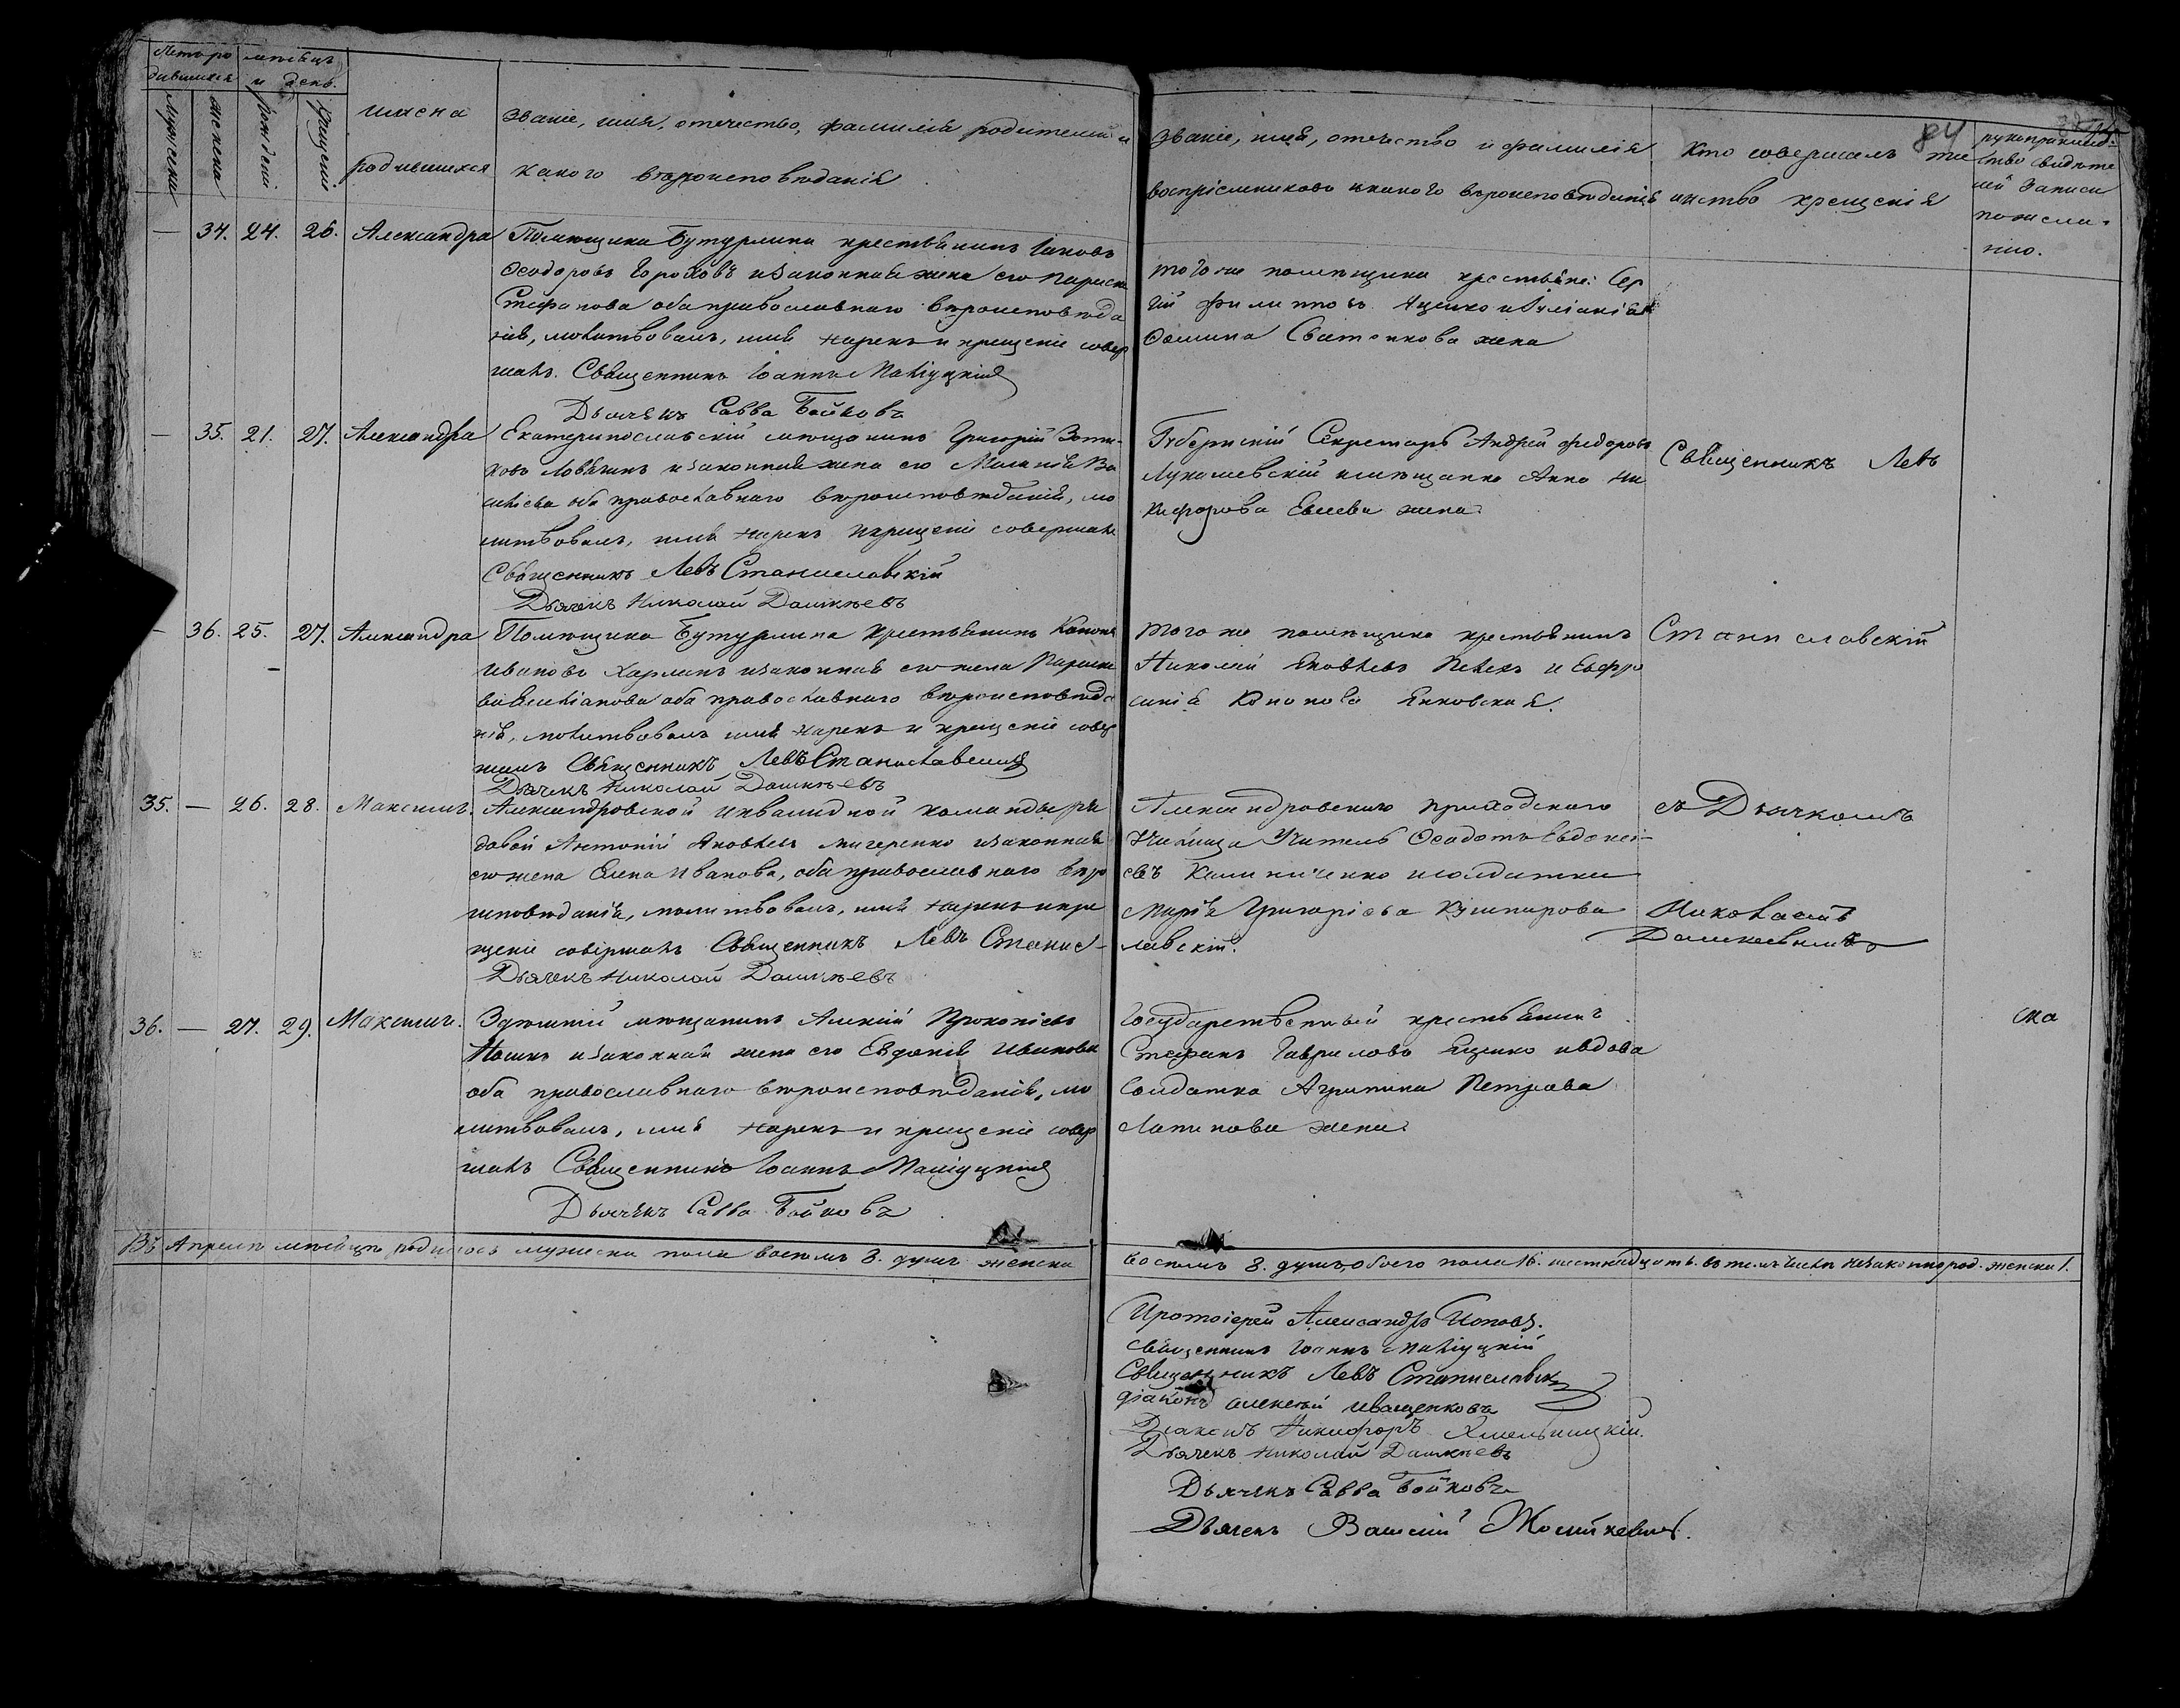 Летъ ро
дившихся
мѣсяцъ
и день.
Мужеска
женска
рожденія
Крещенія
имена
родившихся
Званіе, имя, отечество, фамилія родителей и
какого вѣроисповѣданія
званіе, имя, отечество и фамилія
воспріемниковъ и какого вѣроисповѣданія
Кто совершалъ та
инство крещенія
84
рукоприклад-
ство свидѣте
лей записи
по жела-
нію.
— 34. 24. 26. Александра
Помѣщика Бутурлина крестьянинъ Іаковъ
Ѳеодоровъ Гороховъ и законная жена его Параске
Стефанова оба православнаго вѣроисповѣда
нія, молитвовалъ, имя нарекъ и крещеніе совер
шалъ. Священникъ Іоаннъ
Дьячекъ Савва Бойковъ
того же помѣщика крестьяне: Сер
гій Филипповъ Яценко и Іуліанія
Ѳомина жена
— 35. 21. 27. Александра
Екатеринославскій мѣщанинъ Григорій
и законная жена его Ва
сильева оба православнаго вѣроисповѣданія, мо
литвовалъ, имя нарекъ и крещеніе совершалъ
Священникъ Левъ Станиславскій
Дьячекъ Николай Дашкѣевъ
Губернскій Секретарь Андрей Федоровъ
Лукашевскій и мѣщанка Анна Ни
кифорова Евсеева жена.
Священникъ Левъ
— 36. 25. 27. Александра
Помѣщика Бутурлина крестьянинъ Кононъ
Ивановъ и законная его жена Параске
ва Емиліанова оба православнаго вѣроисповѣда
нія, молитвовалъ имя нарекъ и крещеніе совер
шалъ Священникъ Левъ Станиславскій
Дьячекъ Николай Дашкѣевъ
того же помѣщика крестьянинъ
Николай Яковлевъ и Евфро
синія Кононова Янковская.
Станиславскій
35. — 26. 28. Максимъ.
Александровской инвалидной команды ря
довой Антоній Яковлевъ и законная
его жена Елена Иванова, оба православнаго вѣро
исповѣданія, молитвовалъ, имя нарекъ и кре
щеніе совершалъ Священникъ Левъ Станис-
Дьячекъ Николай Дашкѣевъ
Александровскаго приходскаго
Училища Учитель Ѳеодотъ Евдокі-
евъ Калиниченко и солдатка
Марія Григорьева Кушнирова
лавскій.
съ Дьячкомъ
Николаемъ
Дашкевичемъ
36. — 27. 29. Максимъ.
Здѣшній мѣщанинъ Алексій Прокопіевъ
и законная жена его Евдокія Иванова
оба православнаго вѣроисповѣданія, мо
литвовалъ, имя нарекъ и крещеніе совер
шалъ Священникъ Іоаннъ
Дьячекъ Савва Бойковъ
Государственный крестьянинъ
Стефанъ Гавриловъ Яценко и вдова
солдатка Агрипина Петрова
Латинова жена.
Въ Апрелѣ мѣсяцѣ родилось мужеска пола восемь 8. душъ женска
восемь 8. душъ обоего пола 16. шестнадцать. въ томъ числѣ незаконнород. женска 1.
Протоіерей Александръ Поповъ.
священникъ Іоаннъ
Священникъ Левъ Станиславскій
діаконъ Алексѣй Иващенковъ
Діаконъ Никифоръ Хмельницкій.
Дьячекъ Николай Дашкѣевъ
Дьячекъ Савва Бойковъ
Дьячекъ Василій